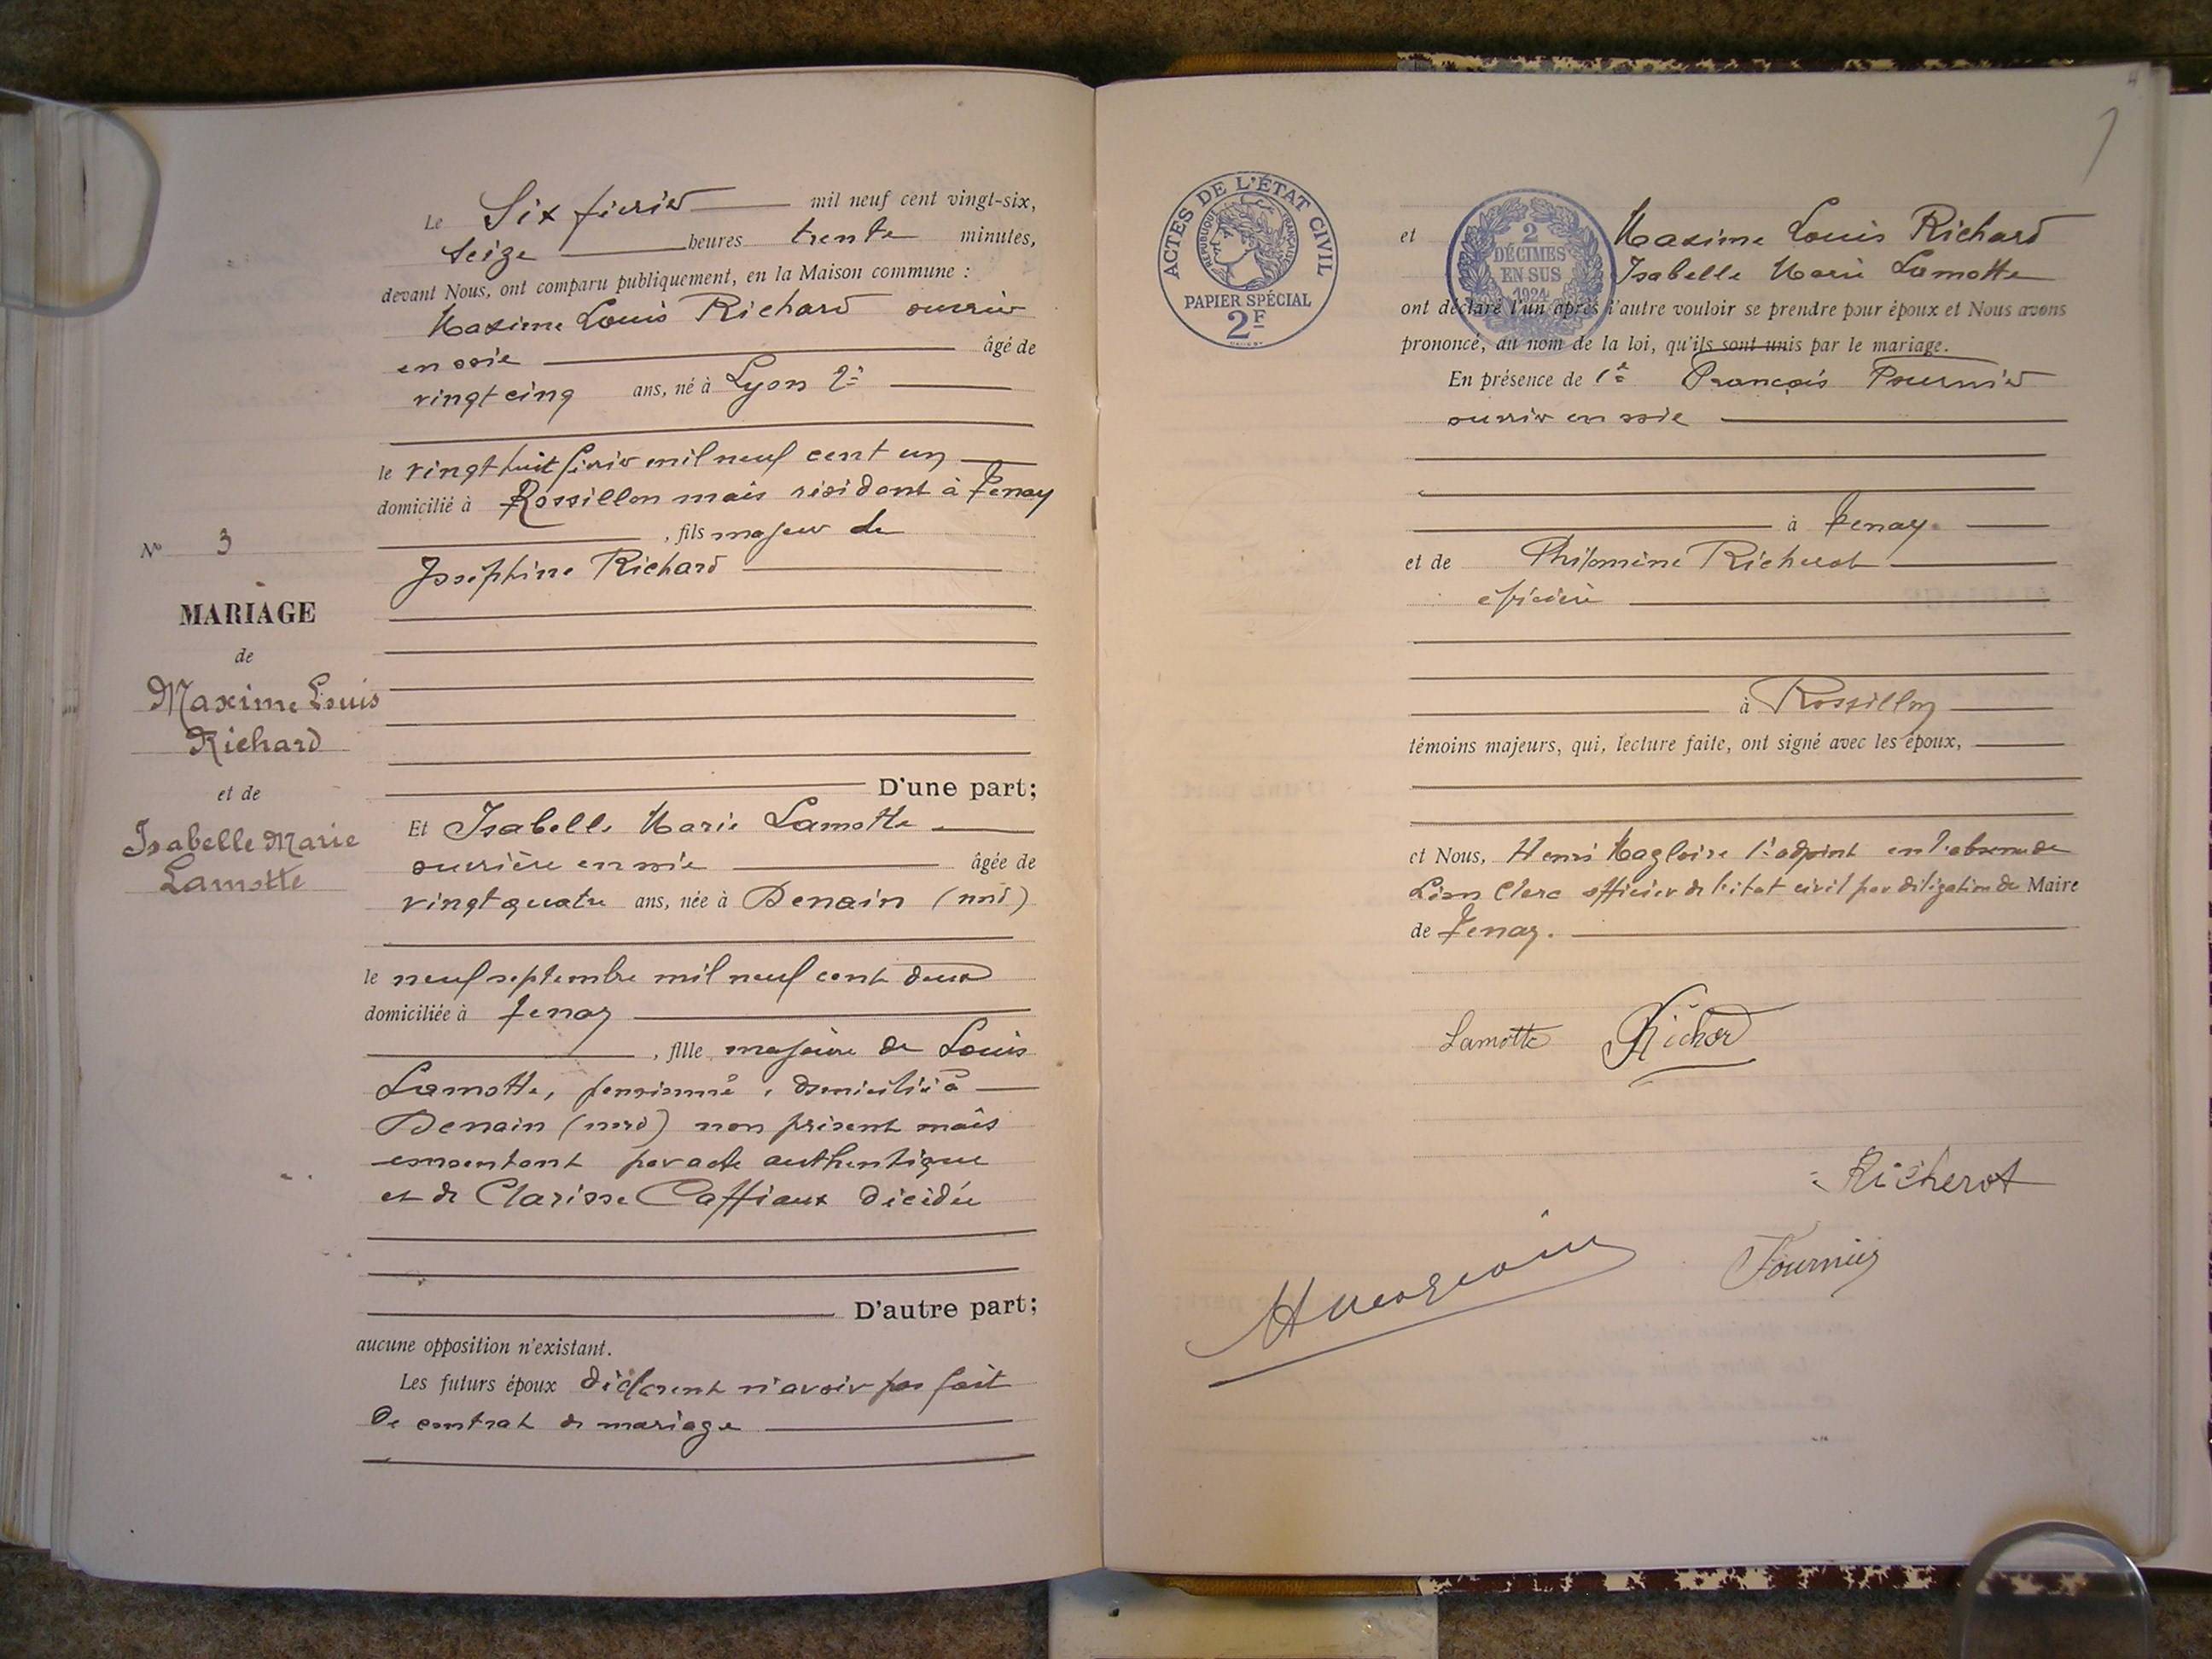 Le Six février mil neuf cent vingt-six,
seize heures trente minutes,
devant Nous, ont comparu publiquement, en la Maison commune :
Maxime Louis Richard ouvrier
en soie âgé de
vingt cinq ans, né à Lyon 2e
le vingt huit février mil neuf cent un
domicilié à Rossillon mais résidant à Tenay
, fils majeur de
Joséphine Richard
D'une part;
Et Isabelle Marie Lamotte
ouvrière en soie âgée de
vingt quatre ans, née à Denain (nord)
le neuf septembre mil neuf cent deux
domiciliée à Tenay
, fille majeure de Louis
Lamotte, pensionné, domicilié à
Denain (nord) non présent mais
consentant par acte authentique
et de Clarisse Caffiaux décédée
D'autre part;
aucune opposition n'existant.
Les futurs époux déclarent n'avoir pas fait
de contrat de mariage
No 3
MARIAGE
de
Maxime Louis
Richard
et de
Isabelle Marie
Lamotte
ACTES DE L'ÉTAT CIVIL
RÉPUBLIQUE FRANÇAISE
PAPIER SPÉCIAL
2F
2
DÉCIMES
EN SUS
1924
et Maxime Louis Richard
Isabelle Marie Lamotte
ont déclaré l'un après l'autre vouloir se prendre pour époux et Nous avons
prononcé, au nom de la loi, qu'ils sont unis par le mariage.
En présence de François Fournier
ouvrier en soie
à Tenay.
et de Philomène Richerot
épicière
à Rossillon
témoins majeurs, qui, lecture faite, ont signé avec les époux,
et Nous, Henri Magloire 1er adjoint en l'absence de
Léon Clerc officier de l'état civil par délégation du Maire
de Tenay.
Lamotte Richard
Richerot
Fournier